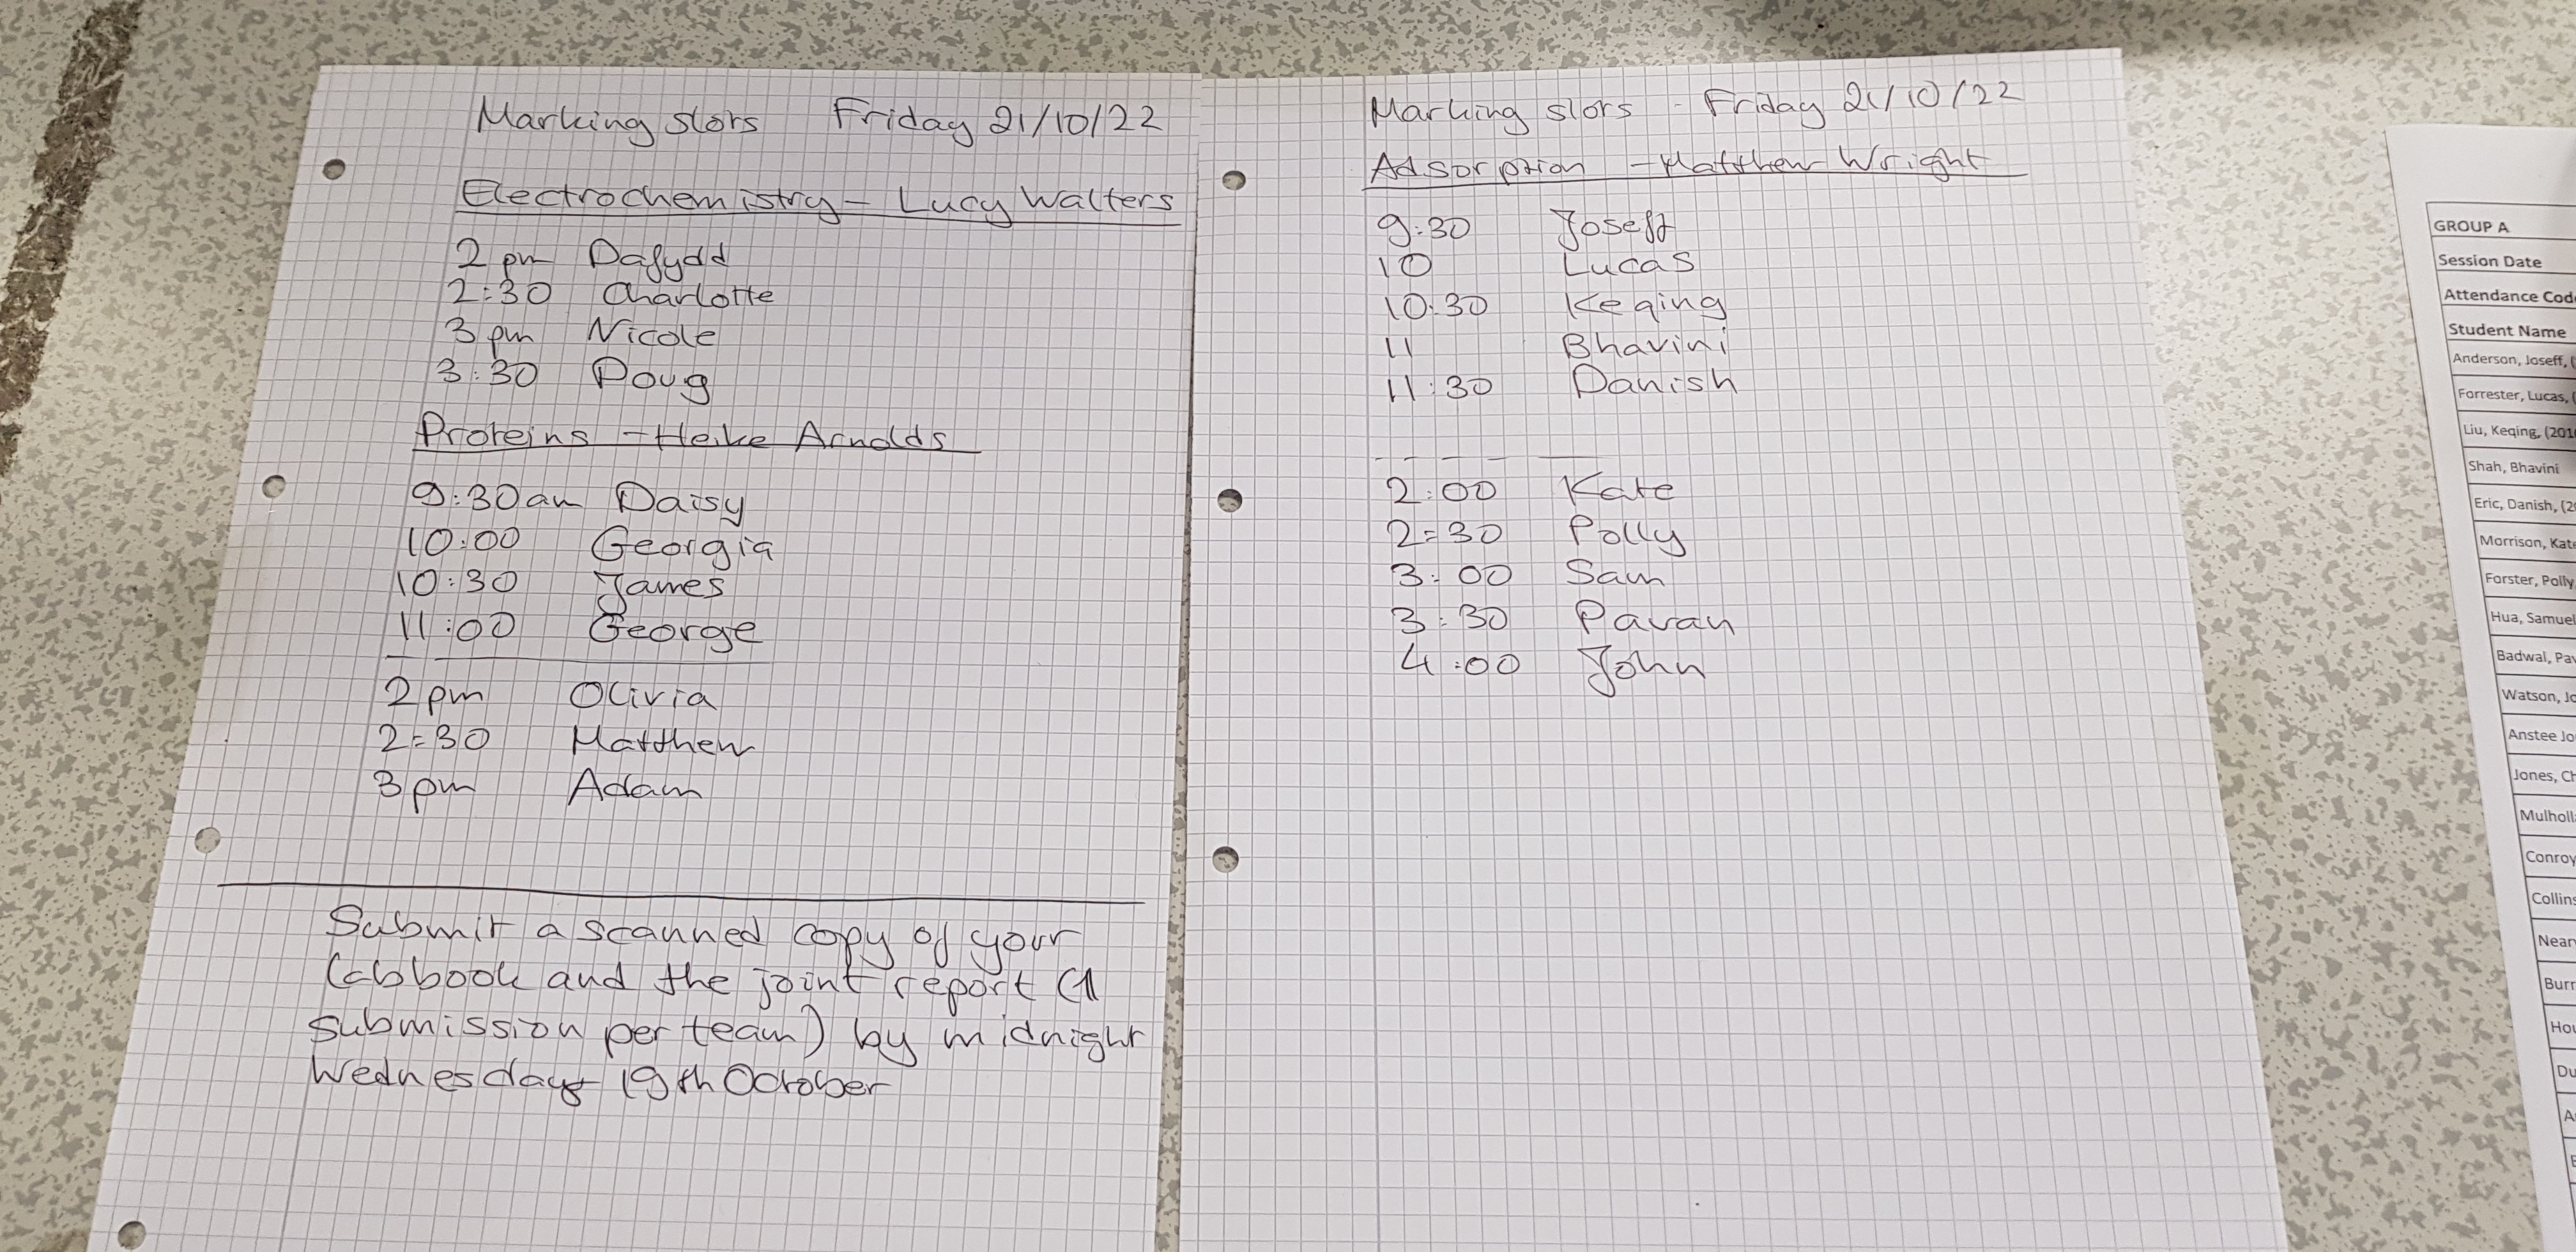 Marking slots Friday 21/10/22
Electrochemistry - Lucy Walters
2 pm Dafydd
2:30 Charlotte
3 pm Nicole
3:30 Doug
Proteins - Heike Arnolds
9:30am Daisy
10:00 Georgia
10:30 James
11:00 George
2 pm Olivia
2:30 Matthew
3 pm Adam
Submit a scanned copy of your
labbook and the joint report (1
submission per team) by midnight
Wednesday 19th October
Marking slots - Friday 21/10/22
Adsorption - Matthew Wright
9:30 Joseff
10 Lucas
10:30 Keqing
11 Bhavini
11:30 Danish
2:00 Kate
2:30 Polly
3:00 Sam
3:30 Pavan
4:00 John
GROUP A
Session Date
Attendance Cod
Student Name
Anderson, Joseff, (
Forrester, Lucas, (
Liu, Keqing, (201
Shah, Bhavini
Eric, Danish, (2
Morrison, Kat
Forster, Polly
Hua, Samuel
Badwal, Pav
Watson, Jo
Anstee Jo
Jones, Ch
Mulholl
Conroy
Collins
Near
Burr
Hou
Du